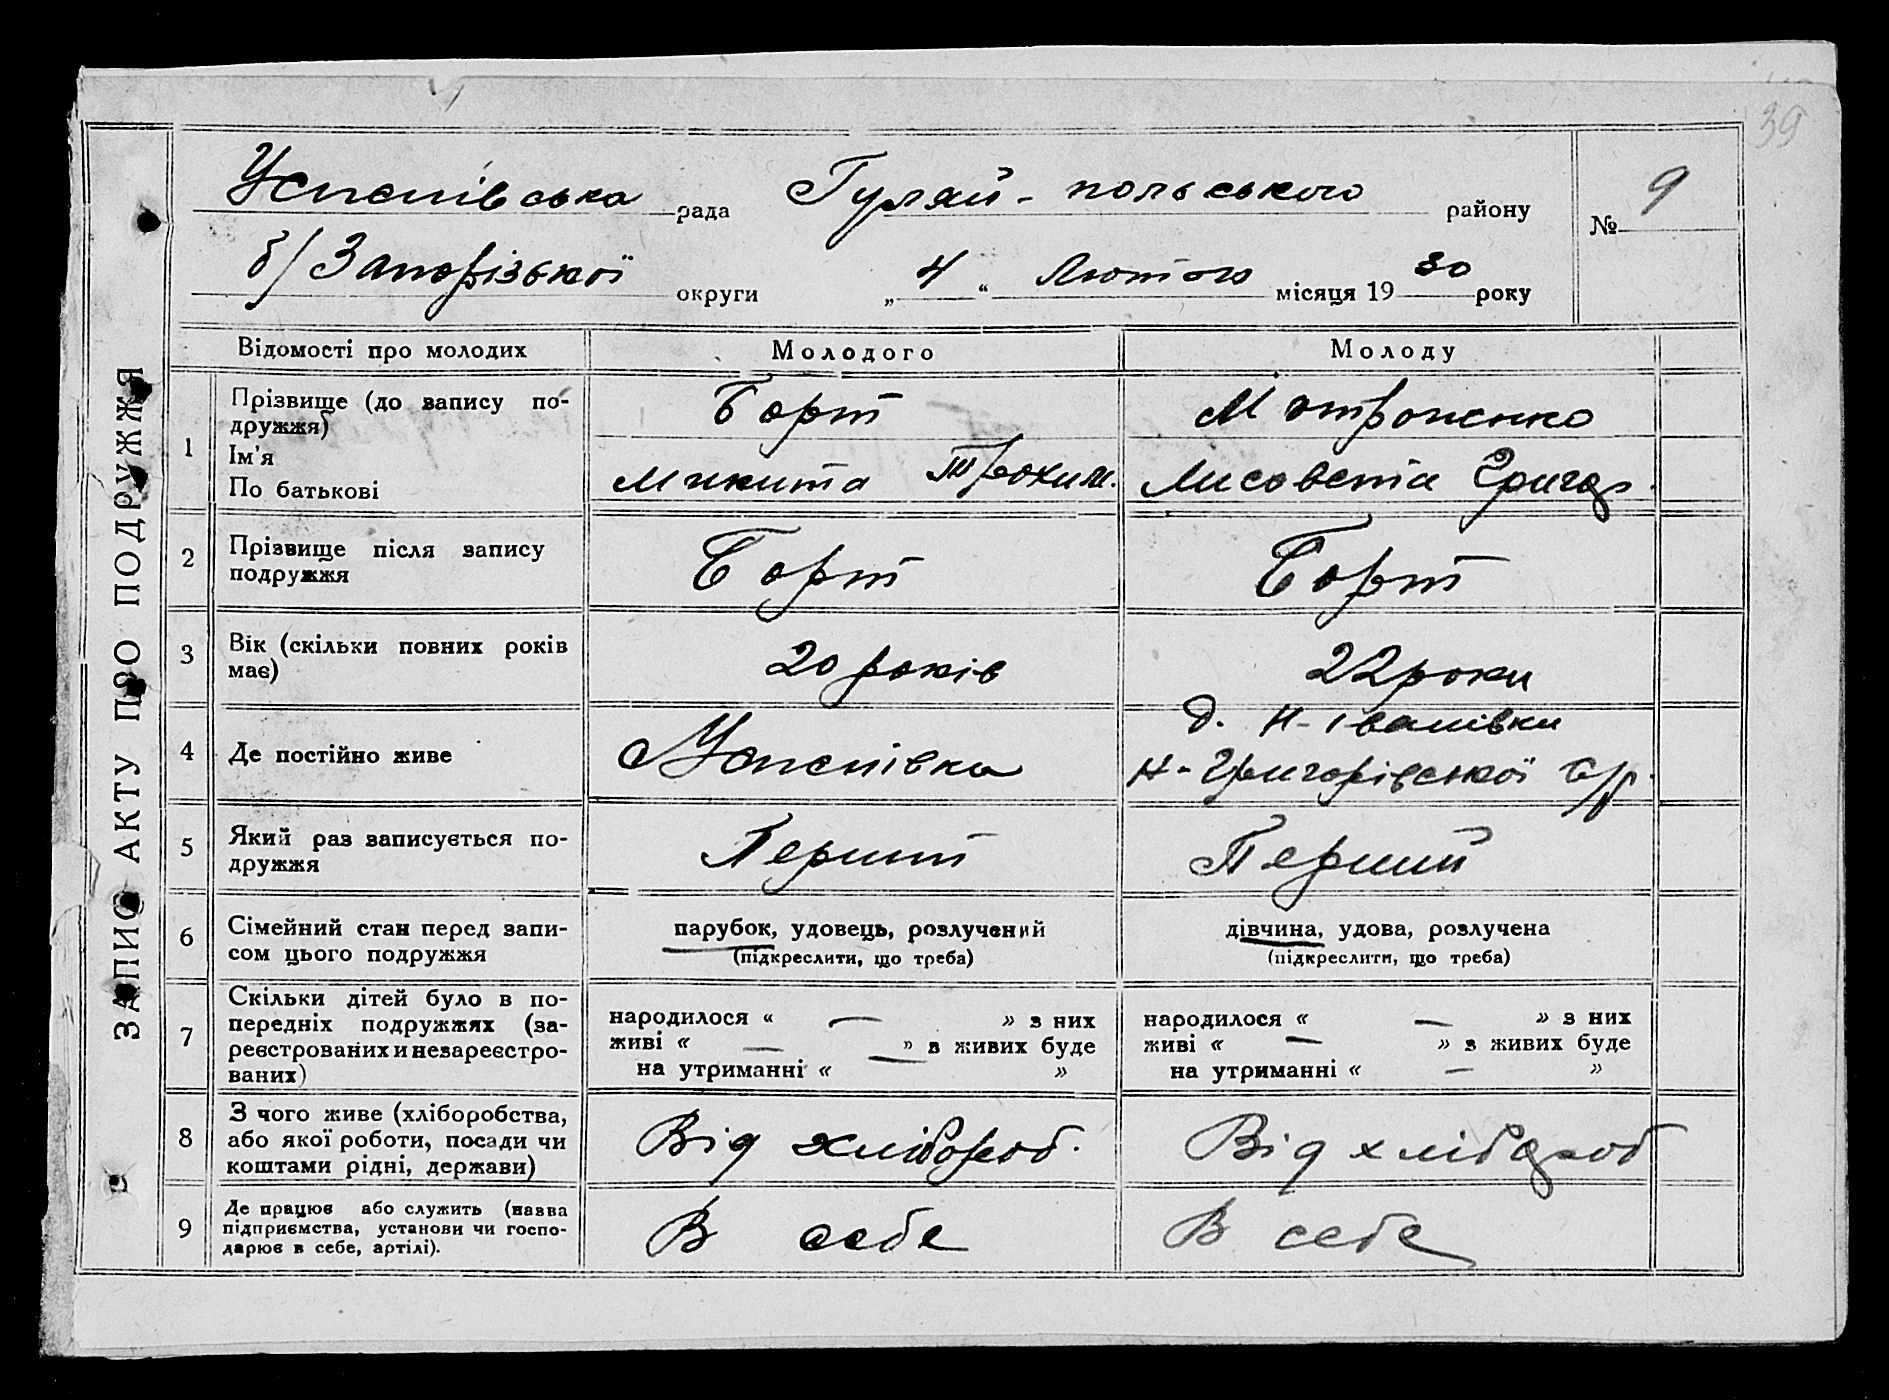 39
ЗАПИС АКТУ ПРО ПОДРУЖЖЯ
Успенівська рада Гуляй-польського району № 9
б/Запорізької округи „4“ Лютого місяця 1930 року
Відомості про молодих Молодого Молоду
1 Прізвище (до запису по-
дружжя) Борт Матроненко
Ім'я
По батькові Микита Трохим. Лисовета Григор.
2 Прізвище після запису
подружжя Борт Борт
3 Вік (скільки повних років
має) 20 років 22 роки
4 Де постійно живе Успенівка д. Н-Іванівки
Н-Григорівської с/р.
5 Який раз записується по-
дружжя Перший Перший
6 Сімейний стан перед запи-
сом цього подружжя
парубок, удовець, розлучений
(підкреслити, що треба)
дівчина, удова, розлучена
(підкреслити, що треба)
7 Скільки дітей було в по-
передніх подружжях (за-
реєстрованих и незареєстро-
ваних)
народилося « — » з них
живі « — » з живих буде
на утриманні « — »
народилося « — » з них
живі « — » з живих буде
на утриманні « — »
8 З чого живе (хліборобства,
або якої роботи, посади чи
коштами рідні, держави)
Від хлібороб. Від хлібороб
9 Де працює або служить (назва
підприємства, установи чи госпо-
дарює в себе, артілі).
В себе В себе